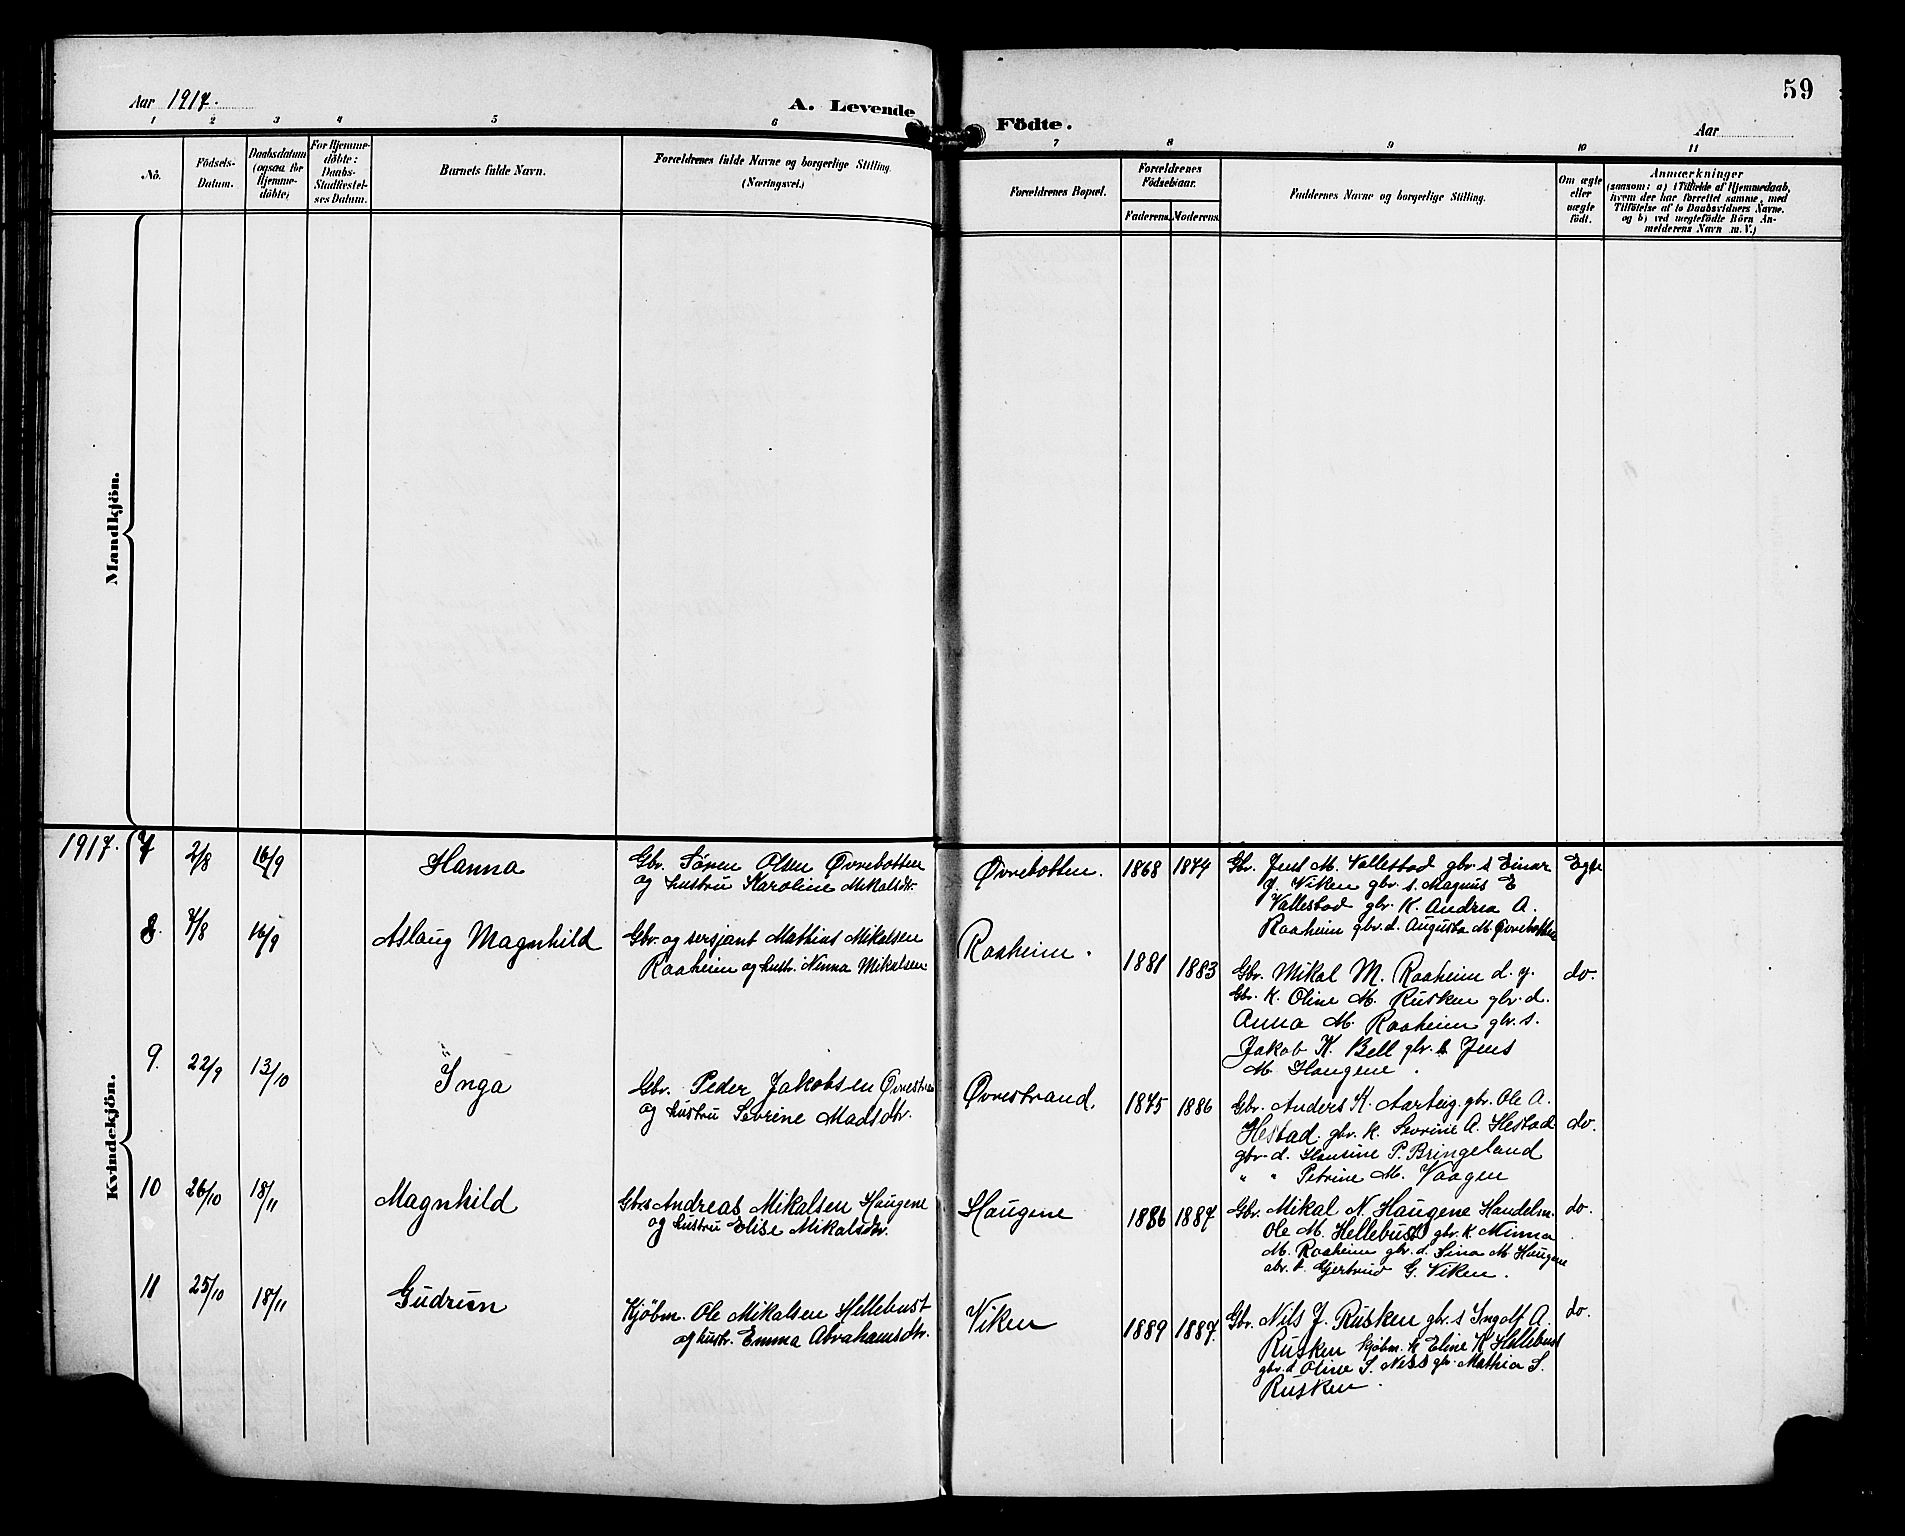 59
Aar 1917.
A. Levende
Födte.
Aar
1 2 3 4 5 6
7 8 9 10 11
No.
Födsels-
Datum.
Daabsdatum
(ogsaa for
Hjemme-
döbte)
For Hjemme-
döbte:
Daabs-
Stadfæstel-
ses Datum.
Barnets fulde Navn.
Forældrenes fulde Navne og borgerlige Stilling.
(Næringsvei.)
Forældrenes Bopæl.
Forældrenes
Födselsaar.
Faderens. Moderens.
Faddernes Navne og borgerlige Stilling.
Om ægte
eller
uægte
födt.
Anmærkninger
(saasom: a) i Tilfælde af Hjemmedaab,
hvem der har forrettet samme, med
Tilföielse af to Daabsvidners Navne.
og b) ved uægtefödte Börn An-
melderens Navn m. V.)
Mandkjön.
Kvindekjön.
1917. 7 2/8 16/9 Hanna
Gbr. Søren Olsen Øvrebotten
og hustru Karoline Mikalsdtr.
Øvrebotten. 1868 1874
Gbr. Jens M. Vallestad gbr. s Einar
J. Viken gbr. s. Magnus E
Vallestad gbr. K. Andrea A.
Raaheim gbr. d. Augusta M. Øvrebotten
Egte
8. 7/8 16/9 Aslaug Magnhild
Gbr. og sersjant Mathias Mikalsen
Raaheim og hustr. Ninna Mikalsen
Raaheim. 1881 1883
Gbr. Mikal M. Raaheim d. y.
Gbr. K. Oline M. Rusken gbr. d.
Anna M. Raaheim gbr. s.
Jakob K. Bell gbr. s Jens
M. Haugene.
do.
9. 22/9 13/10 Inga
Gbr. Peder Jakobsen Øvrestrand
og hustru Sevrine Madsdtr.
Øvrestrand. 1875 1886
Gbr. Anders K. Aarteig. gbr. Ole A.
Hestad. gbr. K. Sevrine A. Hestad
gbr. d. Hansine P. Bringeland
" " Petrine M. Vaagen
do.
10 26/10 18/11 Magnhild
Gbrs Andreas Mikalsen Haugene
og hustru Elise Mikalsdtr.
Haugene 1886 1887
Gbr. Mikal N. Haugene Handelsm.
Ole M. Hellebust gbr. K. Minna
M. Raaheim gbr. d. Sina M. Haugene
Gjertrud G. Viken.
do.
11 25/10 18/11 Gudrun
Kjøbm. Ole Mikalsen Hellebust
og hustr. Emma Abrahamsdtr.
Viken 1889 1887.
Gbr. Nils J. Rusken gbr. s Ingolf A.
Rusken kjøbm. K Eline K Hellebust
gbr. d Oline S. Ness gbr. Mathia S.
Rusken.
do.